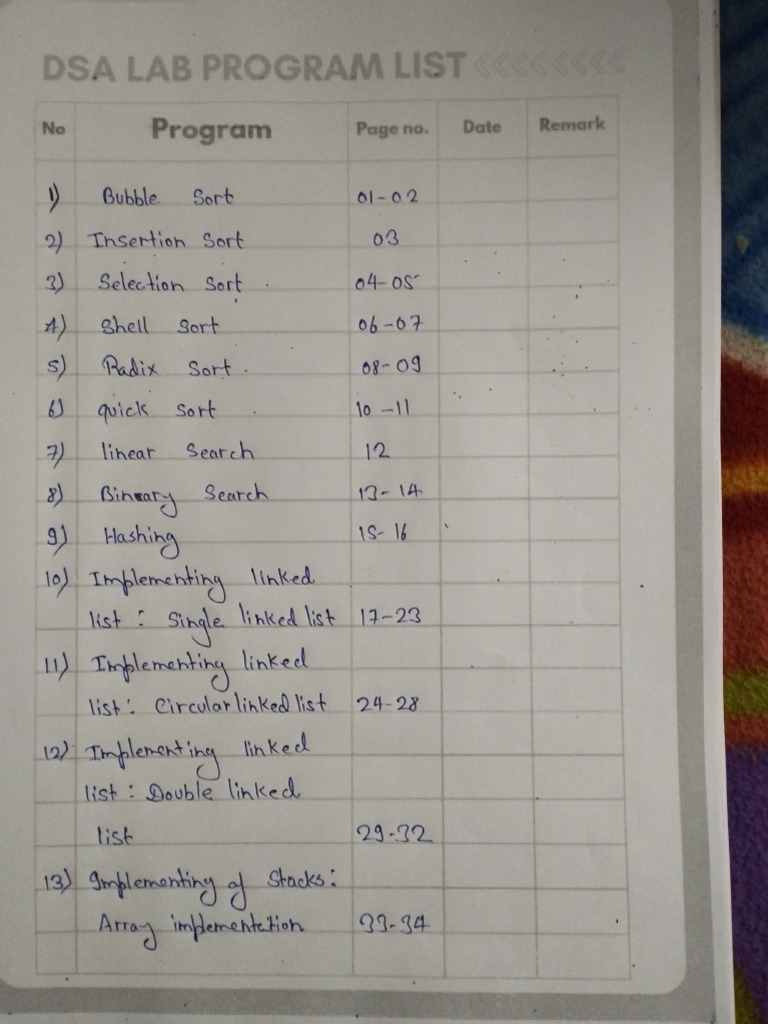 DSA LAB PROGRAM LIST <<<<<<<<
No Program Page no. Date Remark
1) Bubble Sort 01-02
2) Insertion Sort 03
3) Selection Sort. 04-05
4) Shell Sort 06-07
5) Radix Sort. 08-09
6) quick Sort 10-11
7) linear Search 12
8) Binary Search 13-14
9) Hashing 15-16
10) Implementing linked
list : Single linked list 17-23
11) Implementing linked
list : Circular linked list 24-28
12) Implementing linked
list : Double linked
list 29-32
13) Implementing of Stacks:
Array implementation 33-34